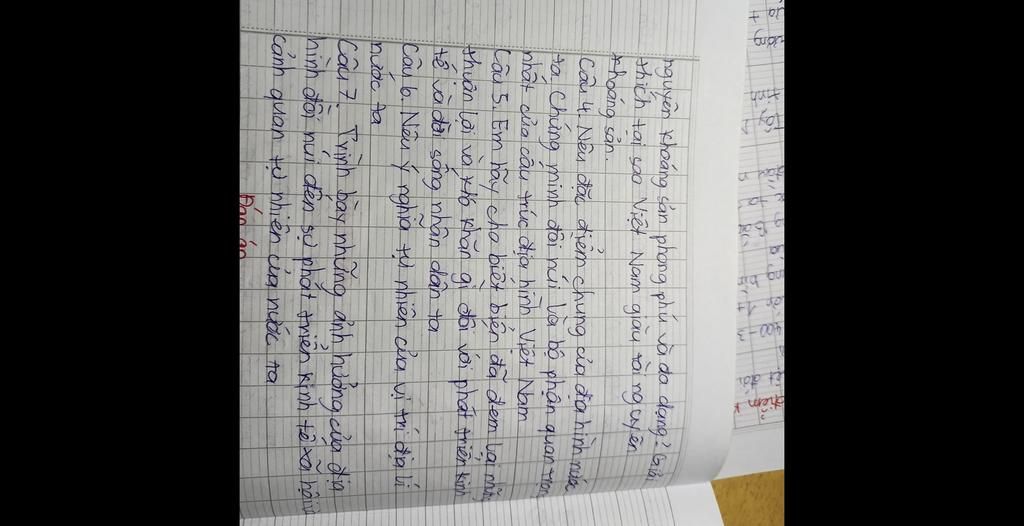 nguyên khoáng sản phong phú và đa dạng? Giải
thích tại sao Việt Nam giàu tài nguyên
khoáng sản.
Câu 4. Nêu đặc điểm chung của địa hình nước
ta. Chứng minh đồi núi là bộ phận quan trọng
nhất của cấu trúc địa hình Việt Nam
Câu 5. Em hãy cho biết biển đã đem lại những
thuận lợi và khó khăn gì đối với phát triển kinh
tế và đời sống nhân dân ta
Câu 6. Nêu ý nghĩa tự nhiên của vị trí địa lí
nước ta
Câu 7: Trình bày những ảnh hưởng của địa
hình đồi núi đến sự phát triển kinh tế xã hội và
cảnh quan tự nhiên của nước ta
Đáp án